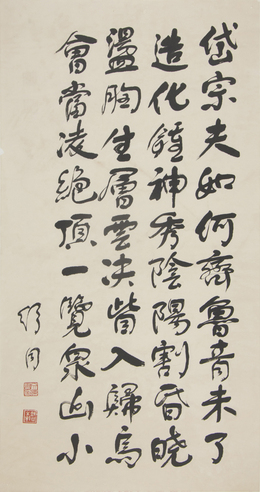 岱宗夫如何齊魯青未了
造化鍾神秀陰陽割昏曉
盪胸生層雲決眥入歸鳥
會當凌絕頂一覽眾山小
舒同